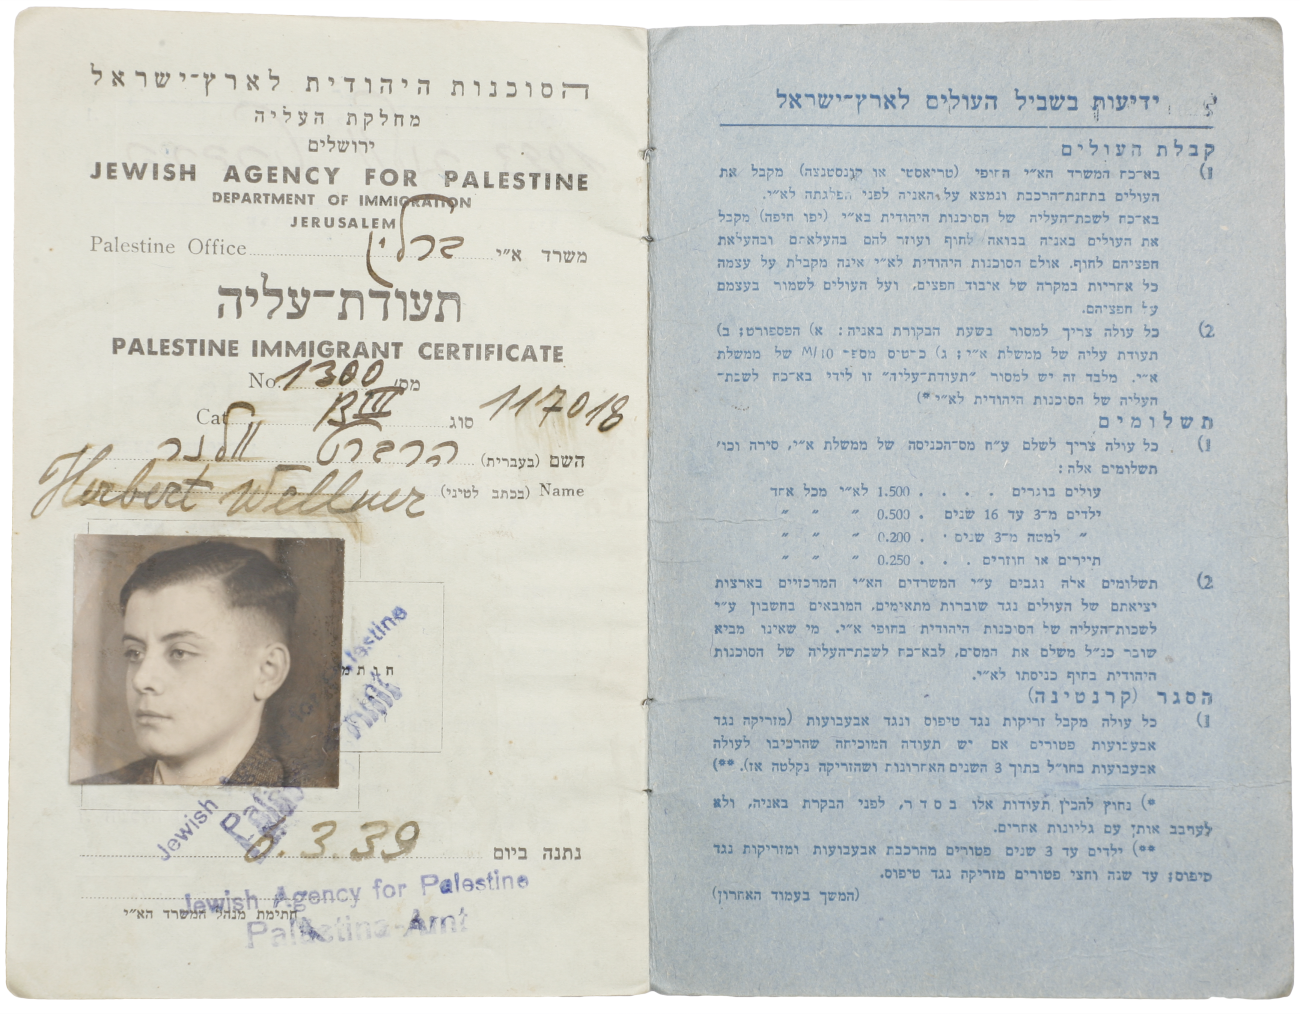 הסוכנות היהודית לארץ־ישראל
מחלקת העליה
ירושלים
JEWISH AGENCY FOR PALESTINE
DEPARTMENT OF IMMIGRATION
JERUSALEM
Palestine Office ברלין משרד א״י
תעודת־עליה
PALESTINE IMMIGRANT CERTIFICATE
No. 1300 מס׳
Cat. B III סוג 117018
השם (בעברית) הרברט ולנר
Name (בכתב לטיני) Herbert Wellner
חותמ
Jewish Palestine
6.3.39 נתנה ביום
Jewish Agency for Palestine
חתימת מנהל המשרד הא״י
Palästina-Amt
ידיעות בשביל העולים לארץ־ישראל
קבלת העולים
1) בא־כח המשרד הא״י החופי (טריאסטי או קונסטנצה) מקבל את
העולים בתחנת־הרכבת ונמצא על האניה לפני הפלגתה לא״י.
בא־כח לשכת־העליה של הסוכנות היהודית בא״י (יפו חיפה) מקבל
את העולים באניה בבואה לחוף ועוזר להם בהעלאתם ובהעלאת
חפציהם לחוף. אולם הסוכנות היהודית לא״י אינה מקבלת על עצמה
כל אחריות במקרה של איבוד חפצים, ועל העולים לשמור בעצמם
על חפציהם.
2) כל עולה צריך למסור בשעת הבקורת באניה: א) הפספורט; ב)
תעודת עליה של ממשלת א״י; ג) כרטיס מספר M/10 של ממשלת
א״י. מלבד זה יש למסור ״תעודת־עליה״ זו לידי בא־כח לשכת־
העליה של הסוכנות היהודית לא״י *)
תשלומים
1) כל עולה צריך לשלם ע״ח מס־הכניסה של ממשלת א״י, סירה וכו׳
תשלומים אלה:
עולים בוגרים . . . . 1.500 לא״י מכל אחד
ילדים מ־3 עד 16 שנים . 0.500 ״ ״ ״
״ למטה מ־3 שנים . . 0.200 ״ ״ ״
תיירים או חוזרים . . . 0.250 ״ ״ ״
2) תשלומים אלה נגבים ע״י המשרדים הא״י המרכזיים בארצות
יציאתם של העולים נגד שוברות מתאימים, המובאים בחשבון ע״י
לשכות־העליה של הסוכנות היהודית בחופי א״י. מי שאינו מביא
שובר כנ״ל משלם את המסים, לבא־כח לשכת־העליה של הסוכנות
היהודית בחוף כניסתו לא״י.
הסגר (קרנטינה)
1) כל עולה מקבל זריקות נגד טיפוס ונגד אבעבועות (מזריקה נגד
אבעבועות פטורים אם יש תעודה המוכיחה שהרכיבו לעולה
אבעבועות בחו״ל בתוך 3 השנים האחרונות ושהזריקה נקלטה אז). **)
*) נחוץ להכין תעודות אלו בסדר, לפני הבקרת באניה, ולא
לערבב אותן עם גליונות אחרים.
**) ילדים עד 3 שנים פטורים מהרכבת אבעבועות ומזריקות נגד
טיפוס; עד שנה וחצי פטורים מזריקה נגד טיפוס.
(המשך בעמוד האחרון)